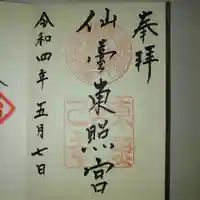 奉拝
仙臺東照宮
令和四年五月七日